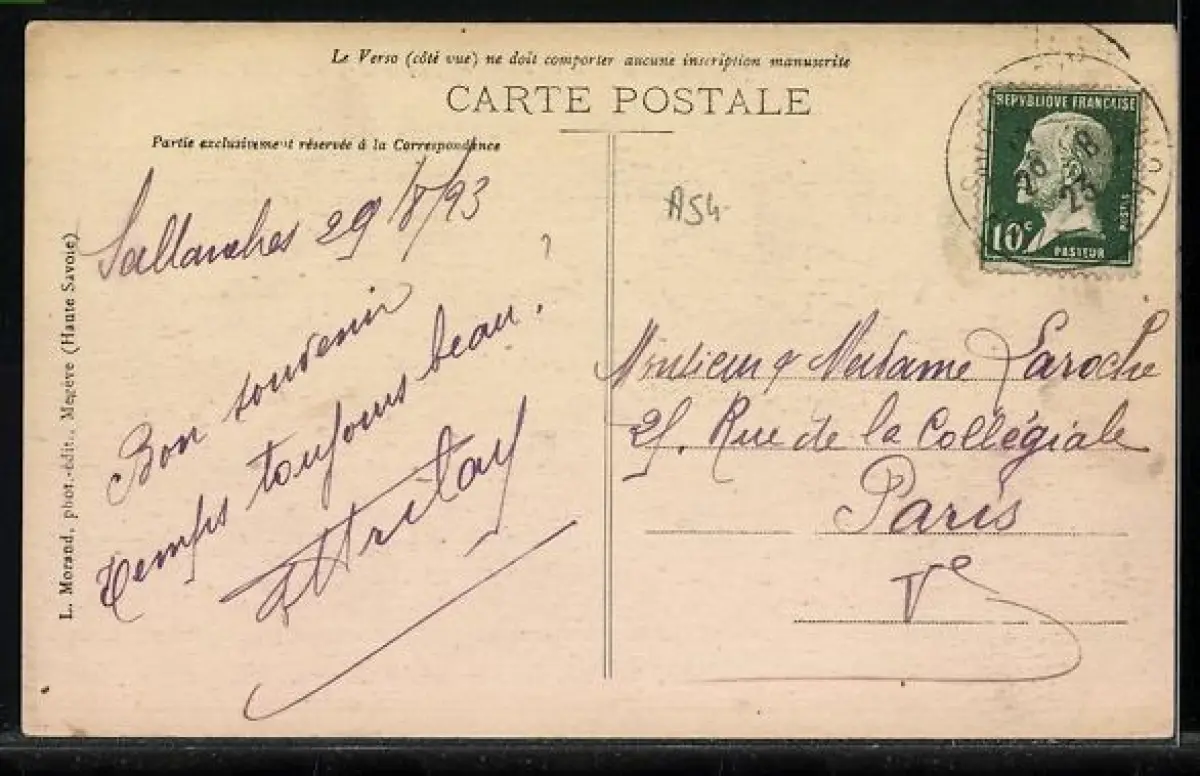 Le Verso (côté vue) ne doit comporter aucune inscription manuscrite
CARTE POSTALE
Partie exclusivement réservée à la Correspondance
L. Morand, phot.-édit., Megève (Haute Savoie)
Sallanches 29/8/93
Bon souvenir
temps toujours beau.
A54
REPVBLIQUE FRANÇAISE
10c
PASTEUR
POSTES
28 8
23
Monsieur & Madame Laroche
25. Rue de la Collégiale
Paris
Ve